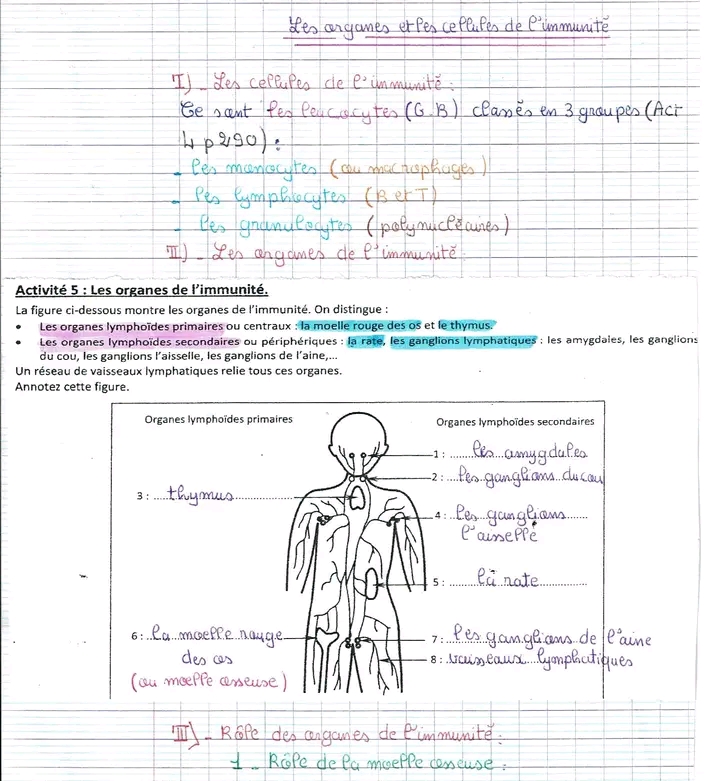 Les organes et les cellules de l'immunité
I) - Les cellules de l'immunité :
Ce sont les leucocytes (G.B) classés en 3 groupes (Act
4 p 290) :
- les monocytes (ou macrophages)
- les lymphocytes (B et T)
- les granulocytes (polynucléaires)
II) - Les organes de l'immunité :
Activité 5 : Les organes de l'immunité.
La figure ci-dessous montre les organes de l'immunité. On distingue :
• Les organes lymphoïdes primaires ou centraux : la moelle rouge des os et le thymus.
• Les organes lymphoïdes secondaires ou périphériques : la rate, les ganglions lymphatiques : les amygdales, les ganglions
du cou, les ganglions l'aisselle, les ganglions de l'aine,...
Un réseau de vaisseaux lymphatiques relie tous ces organes.
Annotez cette figure.
Organes lymphoïdes primaires
Organes lymphoïdes secondaires
1 : les amygdales
2 : les ganglions du cou
3 : thymus
4 : les ganglions
l'aisselle
5 : la rate
6 : la moelle rouge
des os
(ou moelle osseuse)
7 : les ganglions de l'aine
8 : vaisseaux lymphatiques
III) - Rôle des organes de l'immunité :
1 - Rôle de la moelle osseuse :